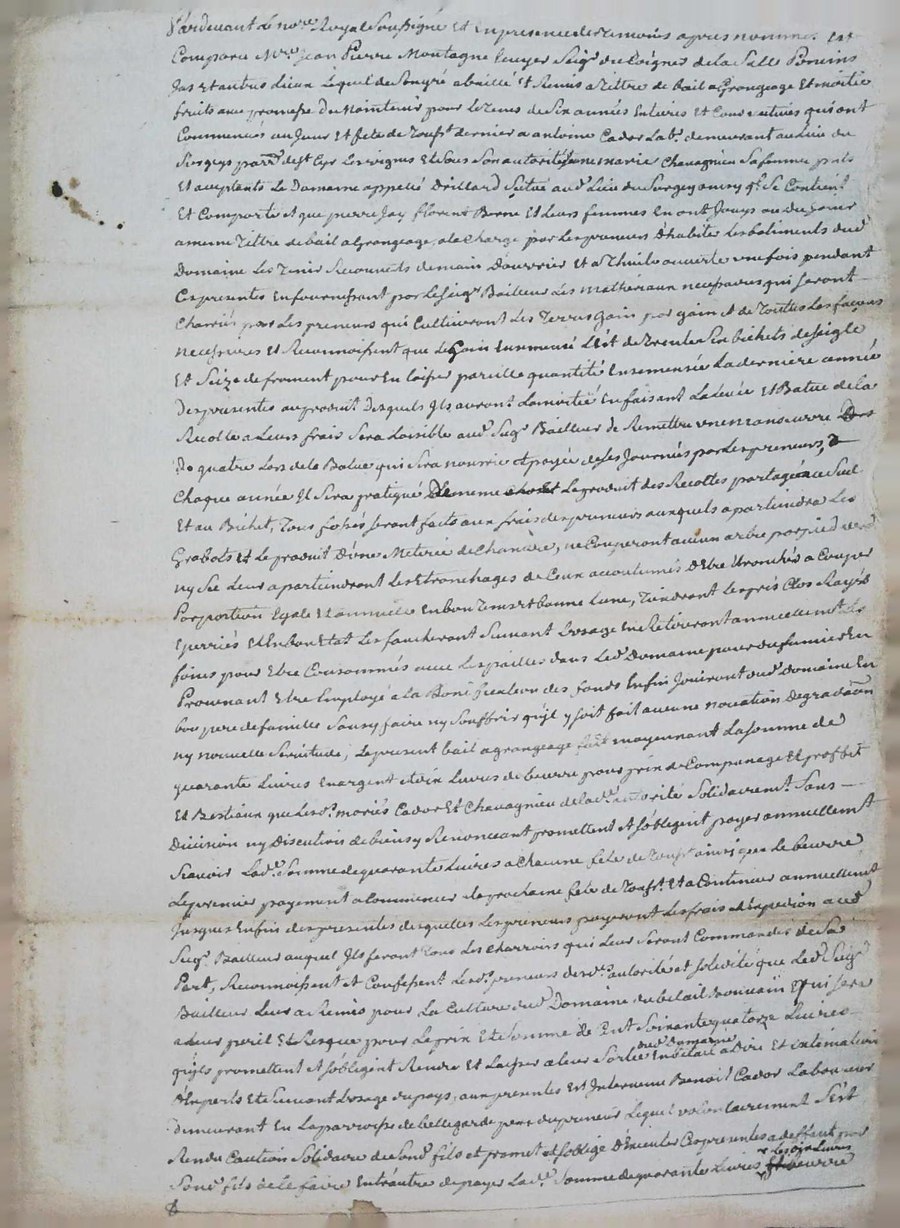 Pardevant le no.re Royal Soussigné et en presence des temoins apres nommes, est
Comparu M.re Jean Pierre Montagne Ecuyer Seig.r de Poignes de la Salle
Jas et autres lieux lequel de Son gré a baillié et Remis a tittre de bail a Grangeage et moitié
fruits avec promesse de maintenir pour le tems de Six années Entieres et Consecutives qui ont
Commencés au Jour et fete de Touss.t dernier a antoine Cador Lab.r demeurant au Lieu du
Surgeys parr.e de S.t Cyr Les vignes et Sous Son autorité Jeanne marie Chavagnieu Sa femme pnts
Et acceptants Le Domaine appellé Drillard Situé aud. Lieu du Surgeys ainsy q.l Se Contient
Et Comporte et que pierre Jay florent Berne Et Leurs femmes En ont Jouys ou du Jouir
a meme Tittre de bail a Grangeage, a la Charge par Les preneurs D'habiter Les batiments dud.
Domaine Les Tenir Recouverts de main D'ouvrier Et a Thuile ouverte une fois pendant
Ces presentes En fournissant par le Seig.r Bailleur Les matheriaux necessaires qui Seront
Charriés par Les preneurs qui Cultiveront Les Terres Gain par gain Et de Touttes Les façons
necessaires Et Reconnoissent que Le Gain Ensemencé Est de Trente Six bichets de Seigle
Et Seize de froment pour En laisser pareille quantité Ensemencée La derniere année
Des presentes au produit Desquels Ils auront La moitié En faisant La Levée et Batue de la
Recolte a Leurs frais Sera Loisible aud. Seig.r Bailleur de Remettre un manoeuvre
De quatre Lors de la Batue qui Sera nourrie et payée de Ses Journées par Les preneurs, &
Chaque année Il Sera pratiqué de meme Le produit des Recoltes partagé au Seul
Et au Bichet, Tous fossés Seront faits aux frais des preneurs auxquels apartiendra Les
Grabots Et Le produit D'une Meterée de Chanvre, ne Couperont aucun arbre par pied verd
ny Sec Leur apartiendront Les Etronchages de Ceux accoutumés D'Etre Etronchés a Couper
Par portion Egale Et annuelle En bon Tems et bonne Lune, Tiendront Les prés Clos Rayés
Eperriés Et En bon Etat Les faucheront Suivant L'usage En Retireront annuellement Les
foins pour Etre Consommés avec Les pailles dans Led. Domaine pour du fumier En
Provenant Etre Employé a La Bonification des fonds Enfin Jouiront dud. Domaine En
bon pere de famille Sans y faire ny Souffrir qu'il y Soit fait aucune novation Degradâon
ny nouvelle Servitude, Le present bail a grangeage fait moyennant La Somme de
quarante Livres En argent et dix Livres de beurre pour prix de Companage Et proffit
Et Bestiaux que Lesd. mariés Cador Et Chavagnieu de lad.e autorité Solidairem.t Sans
Division ny Discution de biens y Renonceant promettent Et S'obligent payer annuellement
Scavoir Lad.e Somme de quarante Livres a Chacune fete de Touss.t ainsi que Le beurre
Le premier payement a Commencer a la prochaine fete de Touss.t Et a Continuer annuellement
Jusques En fin des presentes desquelles Les preneurs payeront Les frais et Expedion aud.
Seig.r Bailleur auquel Ils feront Tous Les Charrois qui Leur Seront Commandés de Sa
Part, Reconnoissent et Confessent Lesd. preneurs desd. autorité et Solidité que Led. Seig.r
Bailleur Leur a Remis pour La Culture dud. Domaine du betail Bouvain qui Sera
a Leur peril Et Risque pour Le prix Et Somme de Cent Soixante quatorze Livres
qu'ils promettent Et S'obligent Rendre Et Laisser a leur Sortie dud. Domaine En betail a Dire Et extimation
D'Experts Et Suivant L'usage du pays, aux presentes Est Intervenu Benoit Cador Laboureur
demeurant En La parroisse de bellegarde pere du preneur Lequel volontairement S'est
Rendu Caution Solidaire de Sond. fils et promet et S'oblige D'Executer Ces presentes a deffaut par
Sond. fils de le faire Entr'autre de payer Lad.e Somme de quarante Livres Et Les dix Livres beurre